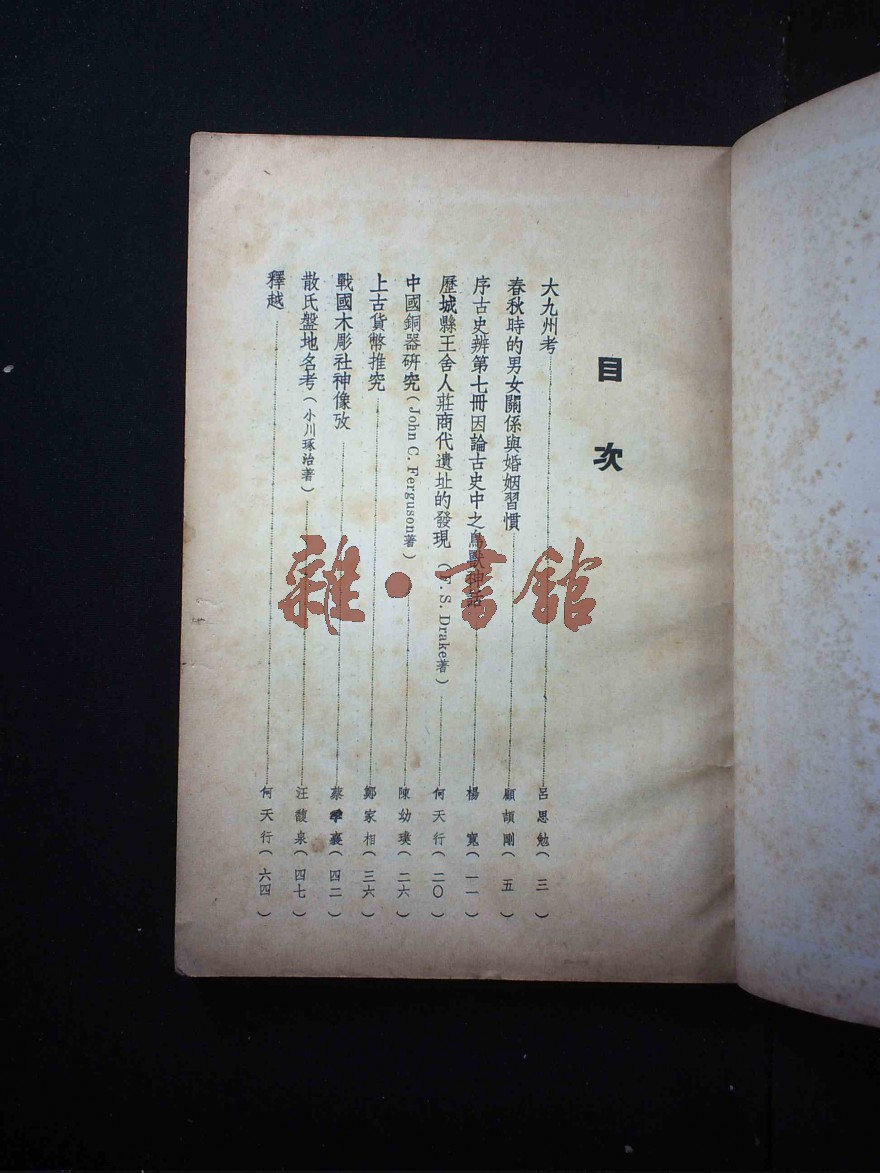 目次
大九州考……呂思勉（三）
春秋時的男女關係與婚姻習慣……顧頡剛（五）
序古史辨第七冊因論古史中之鳥獸神話……楊寬（一一）
歷城縣王舍人莊商代遺址的發現（F. S. Drake著）……何天行（二〇）
中國銅器研究（John C. Ferguson著）……陳幼璞（二六）
上古貨幣推究……鄭家相（三六）
戰國木彫社神像攷……蔡季襄（四二）
散氏盤地名考（小川琢治著）……汪馥泉（四七）
釋越……何天行（六四）
雜·書館